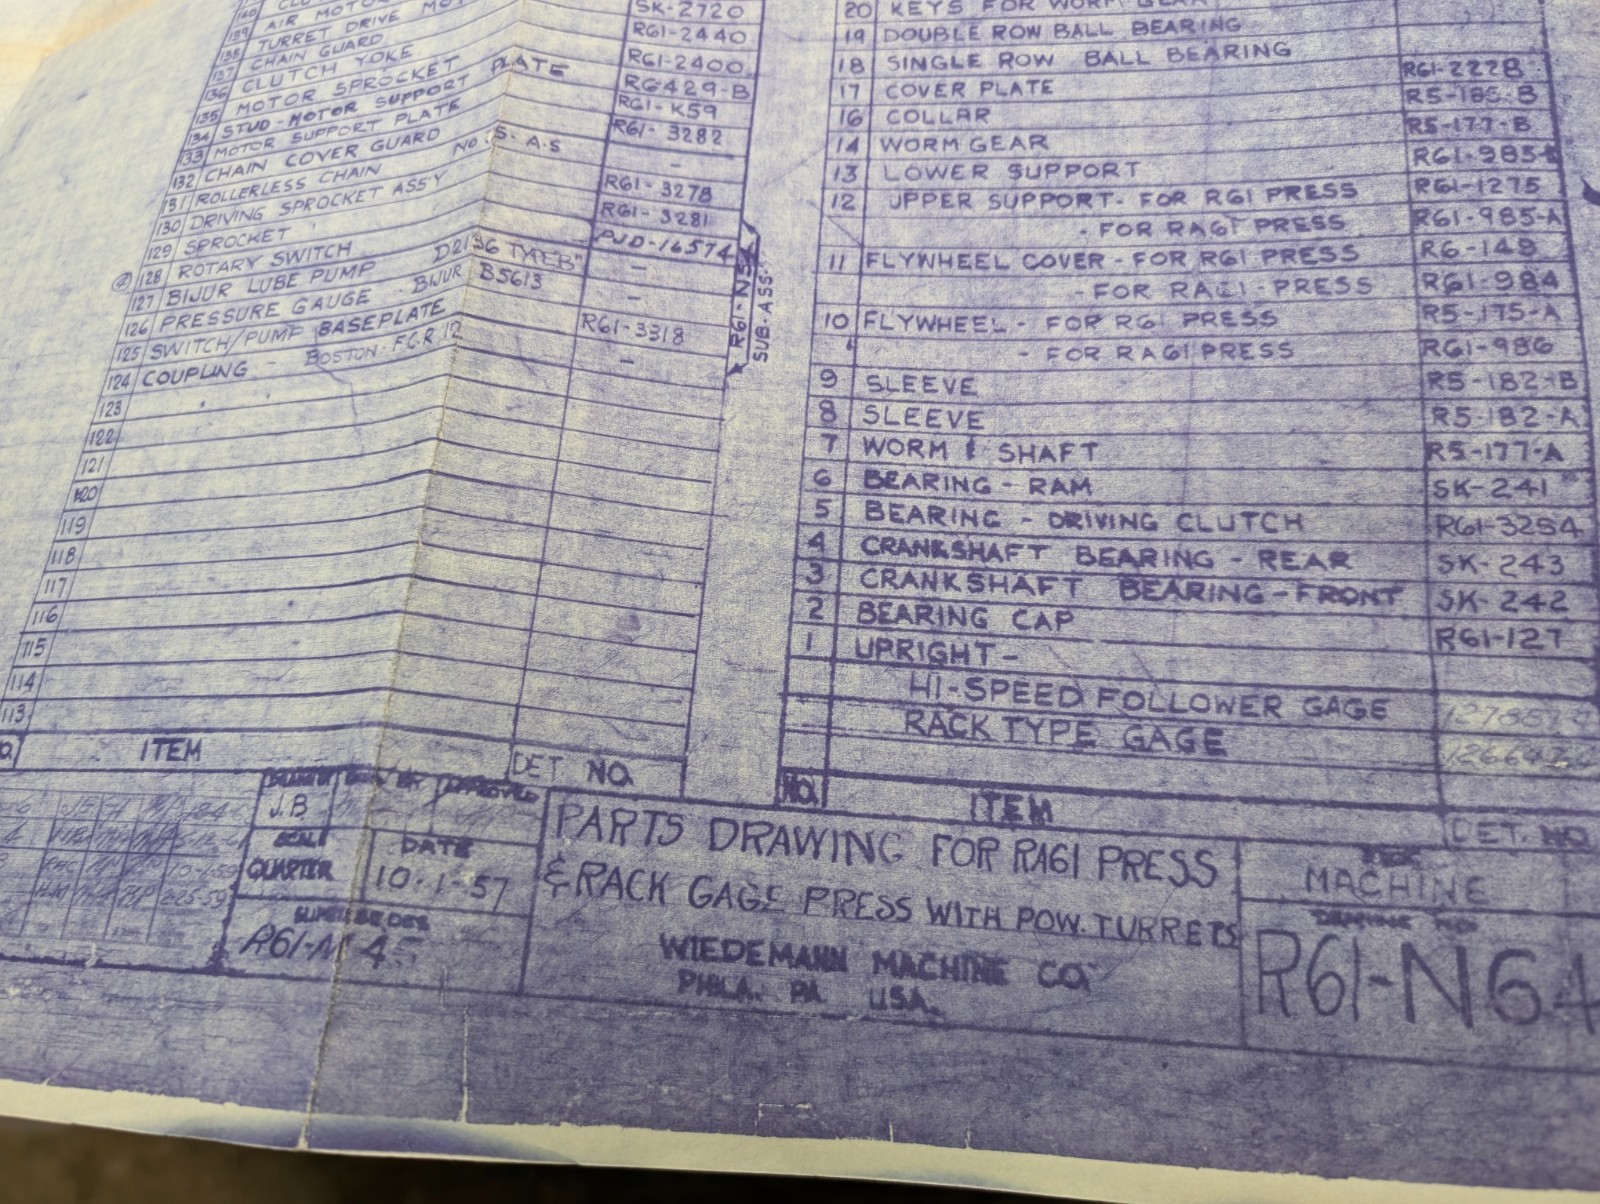 SK-2720
139 AIR MOTOR R61-2440
138 TURRET DRIVE
137 CHAIN GUARD R61-2400
136 CLUTCH YOKE RG429-B
135 MOTOR SPROCKET R61-K59
134 STUD-MOTOR SUPPORT PLATE R61-3282
133 MOTOR SUPPORT PLATE -
132 CHAIN COVER GUARD R61-3278
131 ROLLERLESS CHAIN NO. S.A.S
130 DRIVING SPROCKET ASSY R61-3281
129 SPROCKET PJD-16574
128 ROTARY SWITCH -
127 BIJUR LUBE PUMP D2136 TYPE"B" -
126 PRESSURE GAUGE - BIJUR B5613
125 SWITCH/PUMP BASEPLATE R61-3318
124 COUPLING - BOSTON-F.C.R. -
123
122
121
120
119
118
117
116
115
114
113
ITEM DET. NO.
SUB-ASS.
20 KEYS FOR WORM GEAR
19 DOUBLE ROW BALL BEARING
18 SINGLE ROW BALL BEARING
17 COVER PLATE R61-2228
16 COLLAR R5-185-B
14 WORM GEAR R5-177-B
13 LOWER SUPPORT R61-985-B
12 UPPER SUPPORT- FOR R61 PRESS R61-1275
- FOR RA61 PRESS R61-985-A
11 FLYWHEEL COVER - FOR R61 PRESS R6-149
- FOR RA61 - PRESS R61-984
10 FLYWHEEL - FOR R61 PRESS R5-175-A
- FOR RA61 PRESS R61-986
9 SLEEVE R5-182-B
8 SLEEVE R5-182-A
7 WORM & SHAFT R5-177-A
6 BEARING - RAM SK-241
5 BEARING - DRIVING CLUTCH R61-3254
4 CRANKSHAFT BEARING - REAR SK-243
3 CRANKSHAFT BEARING-FRONT SK-242
2 BEARING CAP R61-127
1 UPRIGHT-
HI-SPEED FOLLOWER GAGE
RACK TYPE GAGE
NO. ITEM DET. NO.
J.B APPROVED
SCALE QUARTER
DATE 10-1-57
SUPERSEDES
PARTS DRAWING FOR RA61 PRESS
& RACK GAGE PRESS WITH POW. TURRETS
WIEDEMANN MACHINE CO.
PHILA. PA. USA.
MACHINE
DRAWING NO.
R61-N64